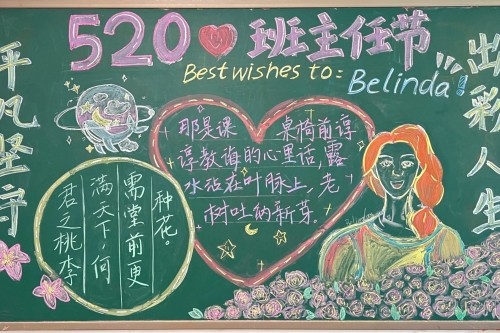 520 班主任节
Best wishes to: Belinda!
平凡坚守
那是课 桌椅前谆
谆教诲的心里话,露
水沾在叶脉上,老
树吐纳新芽。
君之桃李
满天下,何
需堂前更
种花。
出彩人生